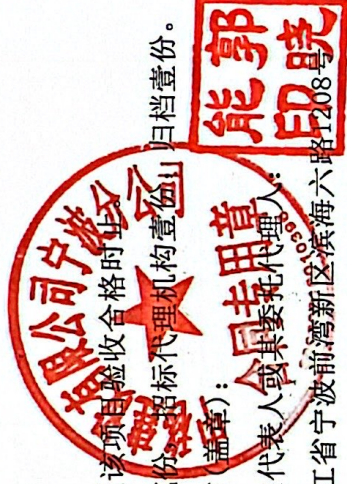 该项目验收合格时止。
份，招标代理机构壹份，归档壹份。
（盖章）：
代表人或其委托代理人：
江省宁波前湾新区滨海六路1208号
有限公司宁波分公司
合同专用章
郭晓
能印